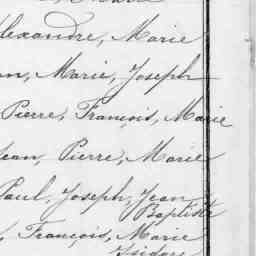 Alexandre, Marie
Marie, Joseph
Pierre, François, Marie
Jean, Pierre, Marie
Paul, Joseph, Jean
Baptiste
François, Marie
Isidore